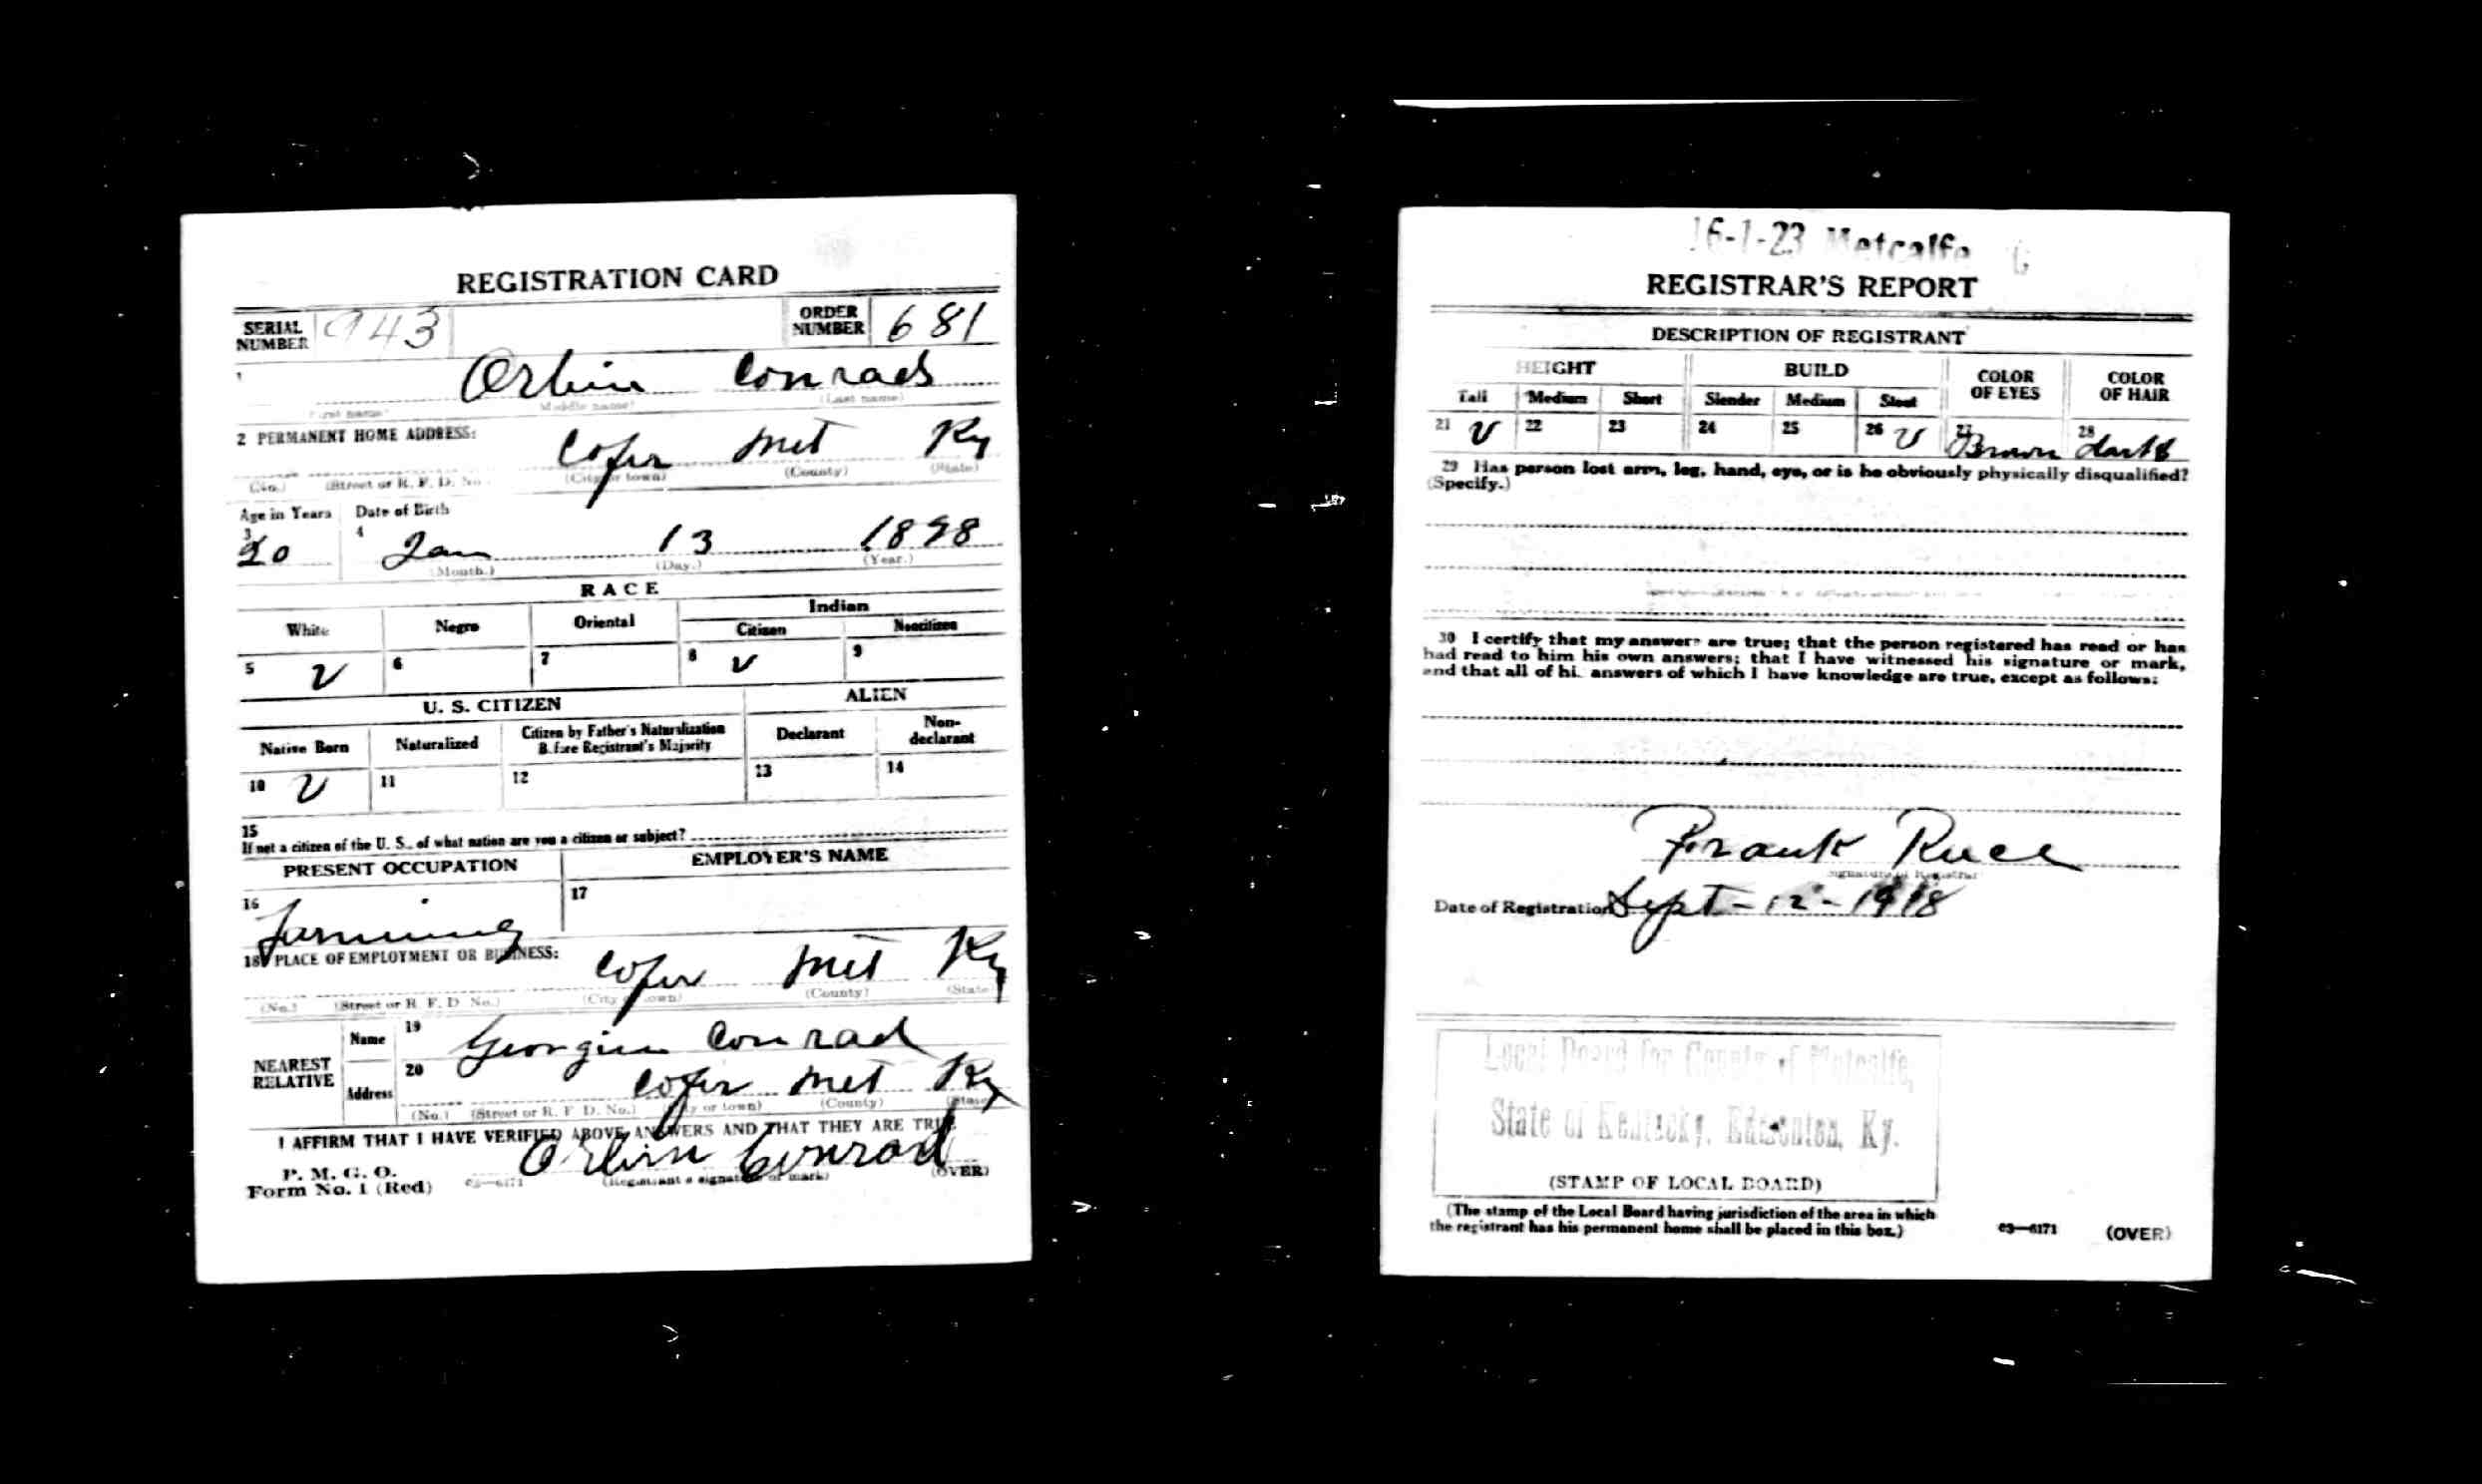 REGISTRATION CARD
SERIAL NUMBER 943 ORDER NUMBER 681
1 Orbin Conrad
(First name) (Middle name) (Last name)
2 PERMANENT HOME ADDRESS:
Cofer Met Ky
(No.) (Street or R. F. D. No.) (City or town) (County) (State)
Age in Years Date of Birth
3 20 4 Jan 13 1898
(Month.) (Day.) (Year.)
RACE
White Negro Oriental Indian
Citizen Noncitizen
5 V 6 7 8 V 9
U. S. CITIZEN ALIEN
Native Born Naturalized Citizen by Father's Naturalization Before Registrant's Majority Declarant Non-declarant
10 V 11 12 13 14
15
If not a citizen of the U. S., of what nation are you a citizen or subject?
PRESENT OCCUPATION EMPLOYER'S NAME
16 Farming 17
18 PLACE OF EMPLOYMENT OR BUSINESS:
Cofer Met Ky
(No.) (Street or R. F. D. No.) (City or town) (County) (State)
NEAREST RELATIVE
Name 19 Conrad
Address 20 Cofer Met Ky
(No.) (Street or R. F. D. No.) (City or town) (County) (State)
I AFFIRM THAT I HAVE VERIFIED ABOVE ANSWERS AND THAT THEY ARE TRUE
P. M. G. O.
Form No. 1 (Red) 03—6171 Orbin Conrad (OVER)
(Registrant's signature or mark)
16-1-23 Metcalfe
REGISTRAR'S REPORT
DESCRIPTION OF REGISTRANT
HEIGHT BUILD COLOR OF EYES COLOR OF HAIR
Tall Medium Short Slender Medium Stout
21 V 22 23 24 25 26 V 27 Brown 28 dark
29 Has person lost arm, leg, hand, eye, or is he obviously physically disqualified?
(Specify.)
30 I certify that my answers are true; that the person registered has read or has
had read to him his own answers; that I have witnessed his signature or mark,
and that all of his answers of which I have knowledge are true, except as follows:
Frank
Signature of Registrar
Date of Registration Sept-12-1918
Local Board for County of Metcalfe,
State of Kentucky, Edmonton, Ky.
(STAMP OF LOCAL BOARD)
(The stamp of the Local Board having jurisdiction of the area in which
the registrant has his permanent home shall be placed in this box.)
03—6171 (OVER)